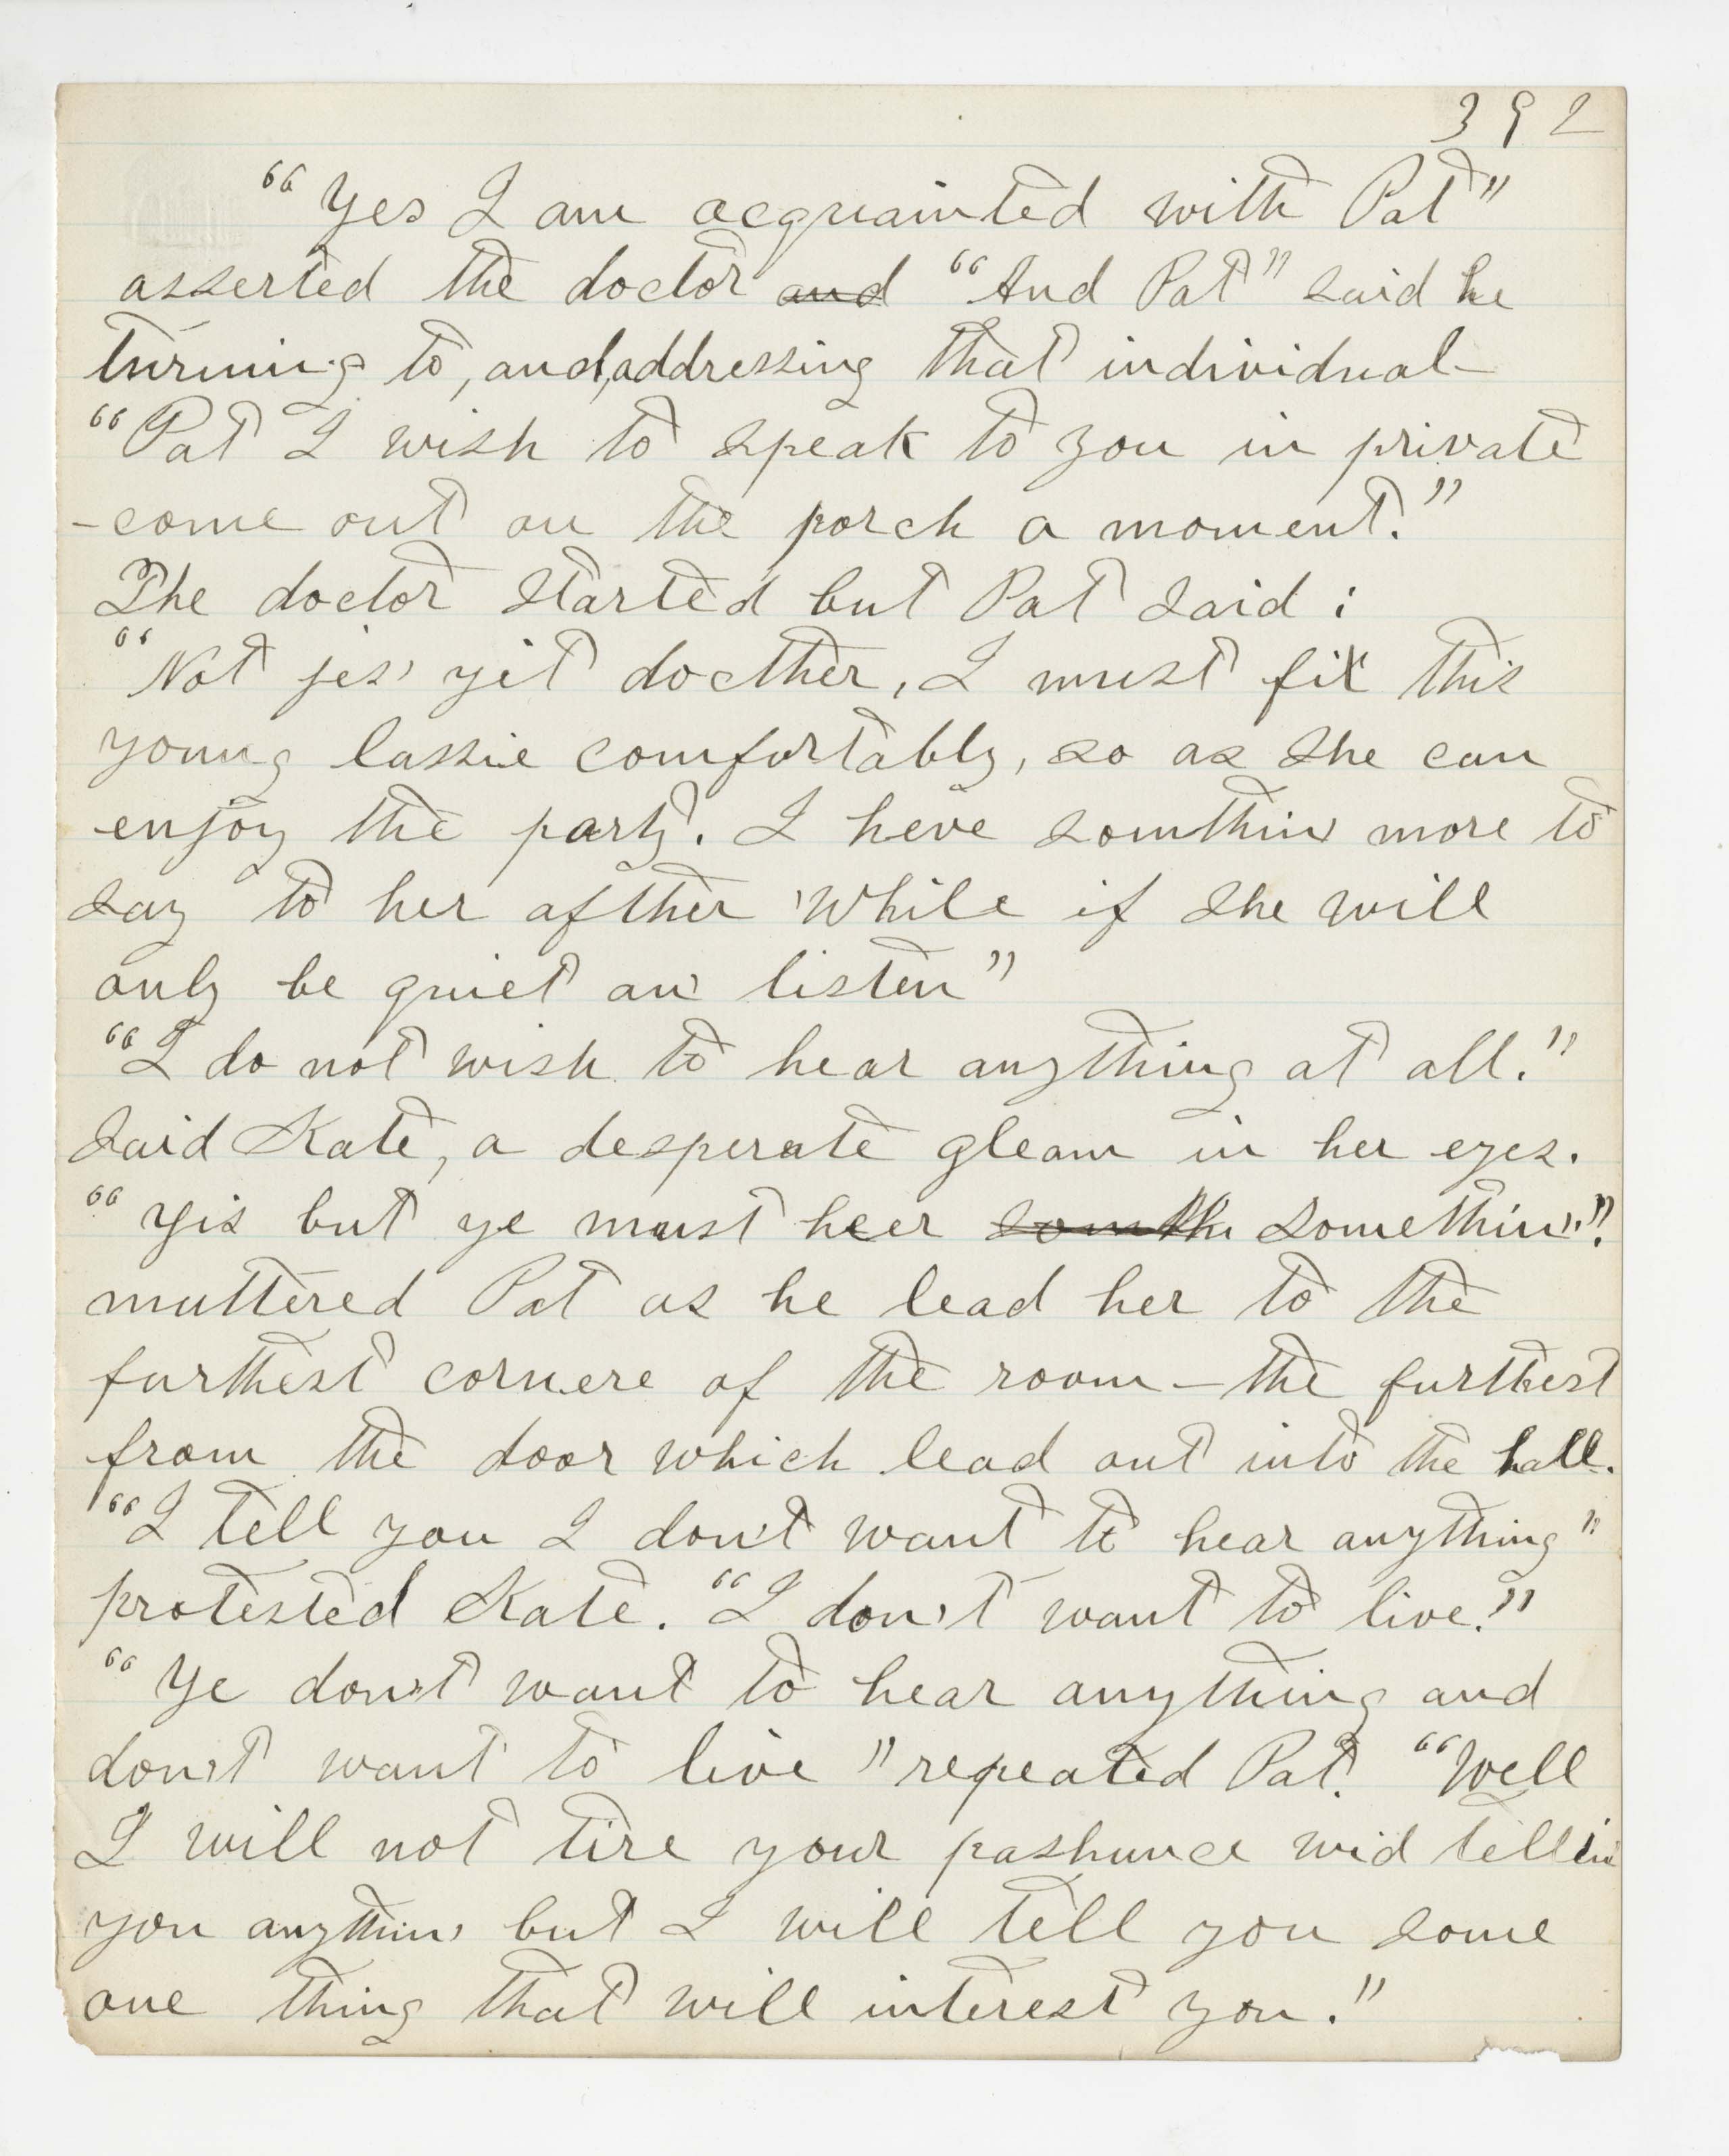 392
"Yes I am acquainted with Pat"
asserted the doctor and "And Pat" said he
turning to, and, addressing that individual—
"Pat I wish to speak to you in private
—come out on the porch a moment."
The doctor started but Pat said:
"Not jes' yit docther, I must fix this
young lassie comfortably, so as she can
enjoy the party. I heve somthin' more to
say to her afther while if she will
only be quiet an' listen"
"I do not wish to hear anything at all."
said Kate, a desperate gleam in her eyes.
"Yis but ye must heer somthi somethin'."
muttered Pat as he lead her to the
furthest cornere of the room — the furthest
from the door which lead out into the hall.
"I tell you I don't want to hear anything"
protested Kate. "I don't want to live."
"Ye don't want to hear anything and
don't want to live" repeated Pat. "Well
I will not tire your pashunce wid tellin
you anythin' but I will tell you some
one thing that will interest you."